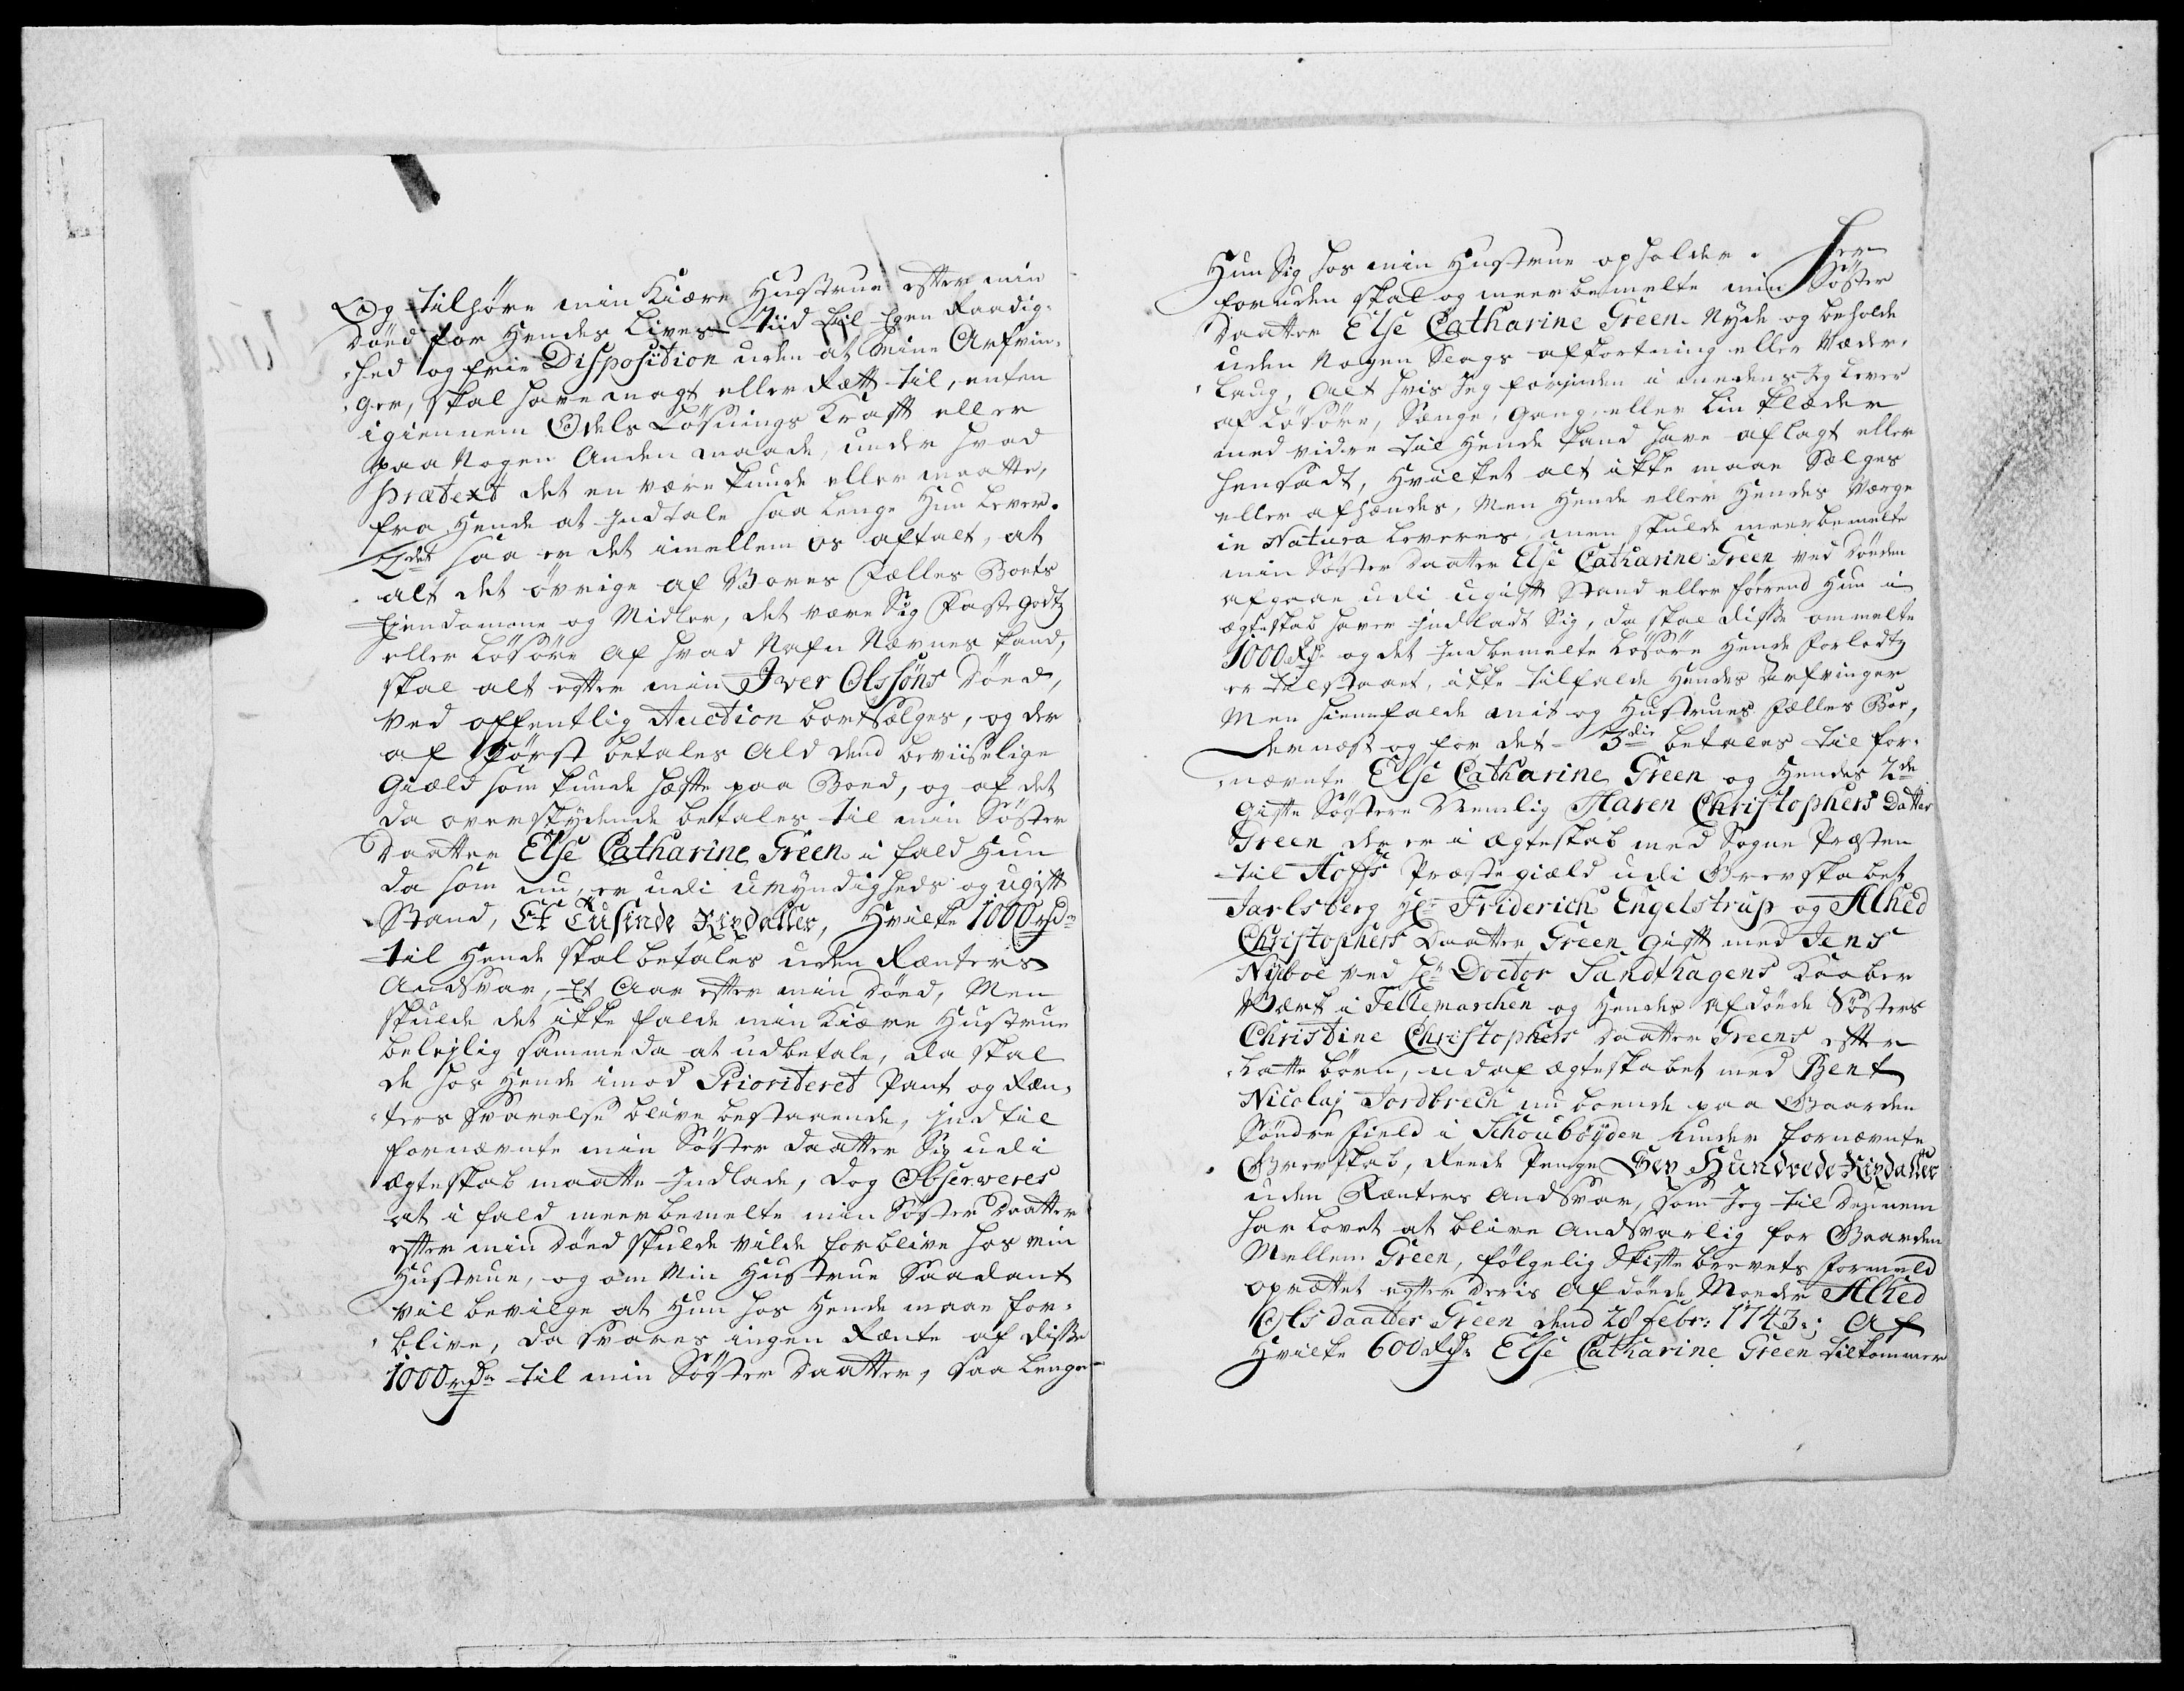 Og tilhøre min Kiære Hustrue efter min
Død for Hendes Lives Tiid til Egen Raadig-
hed og frie Disposition uden at Mine Arfvin-
ger, skal have magt eller Rætt til, enten
igiennem Odels Løsnings Krafft eller
paa Nogen Anden maade, under hvad
prætext det en være kunde eller maatte,
fra Hende at Indtale saa længe Hun lever.
2det saa er det imellem os aftalt, at
alt det øvrige af Vores Fælles Boets
Eiendomme og Midler, det være Sig Faste godtz
eller Løsøre af hvad Nafn Nævnes kand,
skal alt efter min Iver Olssøns Død,
ved offentlig Auction bortsælges, og der
af Først betales Ald dend beviiselige
Giæld som kunde hæfte paa Boed, og af det
da overskydende betales til min Søster
Daatter Else Catharine Green i fald Hun
da som nu, er udi umyndigheds og ugift
Stand, Et Tusinde Rixdaller, Hvilke 1000 rd
til Hende skal betales uden Renters
Andsvar, Et Aar efter min Død, Men
skulde det ikke falde min Kiære Hustrue
belejlig samme da at udbetale, da skal
de hos Hende imod Prioriteret Pant og Ren-
ters svarelse blive bestaaende, ind til
fornævnte min Søster Daatter Sig udi
ægteskab maatte Indlade, dog Observeres
at i fald meerbemelte min Søster Daatter
efter min Død skulde vilde forblive hos min
Hustrue, og om Min Hustrue Saadant
vil bevilge at Hun hos Hende maae for-
blive, da svares ingen Rente af disse
1000 rd til min Søster Daatter, saa længe
Hun Sig hos min Hustrue opholder. Her
foruden skal og meerbemelte min Søster
Daatter Else Catharine Green Nyde og beholde
uden Nogen Slags afkortning eller Veder-
laug, Alt hvis Jeg forinden i medens Jeg Lever
af Løsøre, Senge, Gang, eller Lin klæder
med videre til Hende kand have aflagt eller
hensadt, Hvilket alt ikke maae Sælges
eller afhændes, Men Hende eller Hendes Værge
in Natura leveres, men skulde meerbemelte
min Søster Daatter Else Catharine Green ved Døden
afgaae udi ugift Stand eller førend Hun i
ægteskab haver Indladt Sig, da skal disse ommelte
1000 Rd og det Indbemelte Løsøre Hende forlodtz
er tilstaaet, ikke tilfalde Hendes Arfvinger
Men hiemfalde mit og Hustrues Fælles Boe,
Dernæst og for det 3die betales til for-
nævnte Else Catharine Green og Hendes 2de
gifte Søstere Nemlig Maren Christophers Datter
Green der er i Ægteskab med Sogne Præsten
til Hoffs Præstegiæld udi Grevskabet
Jarlsberg Hr Friderich Engelstrup og Alhed
Christophers Daatter Green gift med Jens
Nyboe ved Hr Doctor Sandhagens Kaaber
Værk i Tellemarchen og Hendes Afdøde Søsters
Christine Christophers Daatter Greens efter-
latte børn, udaf ægteskabet med Bent
Nicolaj Jordbrech nu boende paa Gaarden
Søndre Field i Schoubøyden under fornævnte
Grevskab, Reede Penge Sex Hundrede Rixdaller
uden Renters Andsvar, som Jeg til Dennem
har lovet at blive Andsvarlig for Gaarden
Mellem Green, følgelig Skifte brevets formeld
oprettet efter Deris Afdøde Moder Alhed
Ols daatter Green dend 28 Febr: 1743.; Af
Hvilke 600 Rd: Else Catharine Green tilkommer